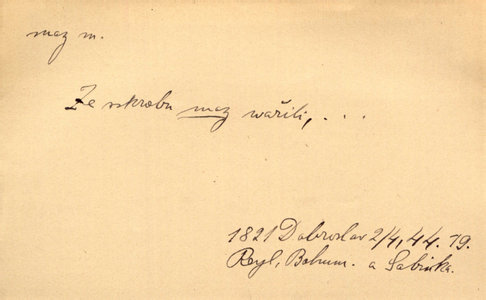 maz m.
Ze sskrobu maz wařili, . . .
1821 Dobroslav 2/4, 44. 19.
Regl, Bohum. a Sabinka.